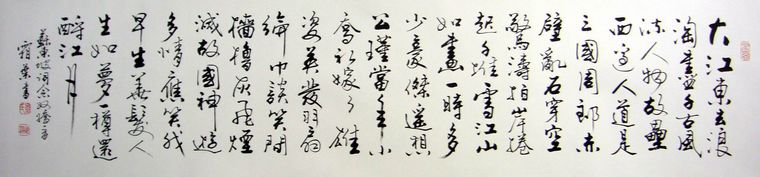 大江東去浪
淘盡千古風
流人物故壘
西邊人道是
三國周郎赤
壁亂石穿空
驚濤拍岸捲
起千堆雪江山
如畫一時多
少豪傑遙想
公瑾當年小
喬初嫁了雄
姿英發羽扇
綸巾談笑間
檣櫓灰飛煙
滅故國神遊
多情應笑我
早生華髮人
生如夢一樽還
酹江月
蘇東坡詞念奴嬌
書